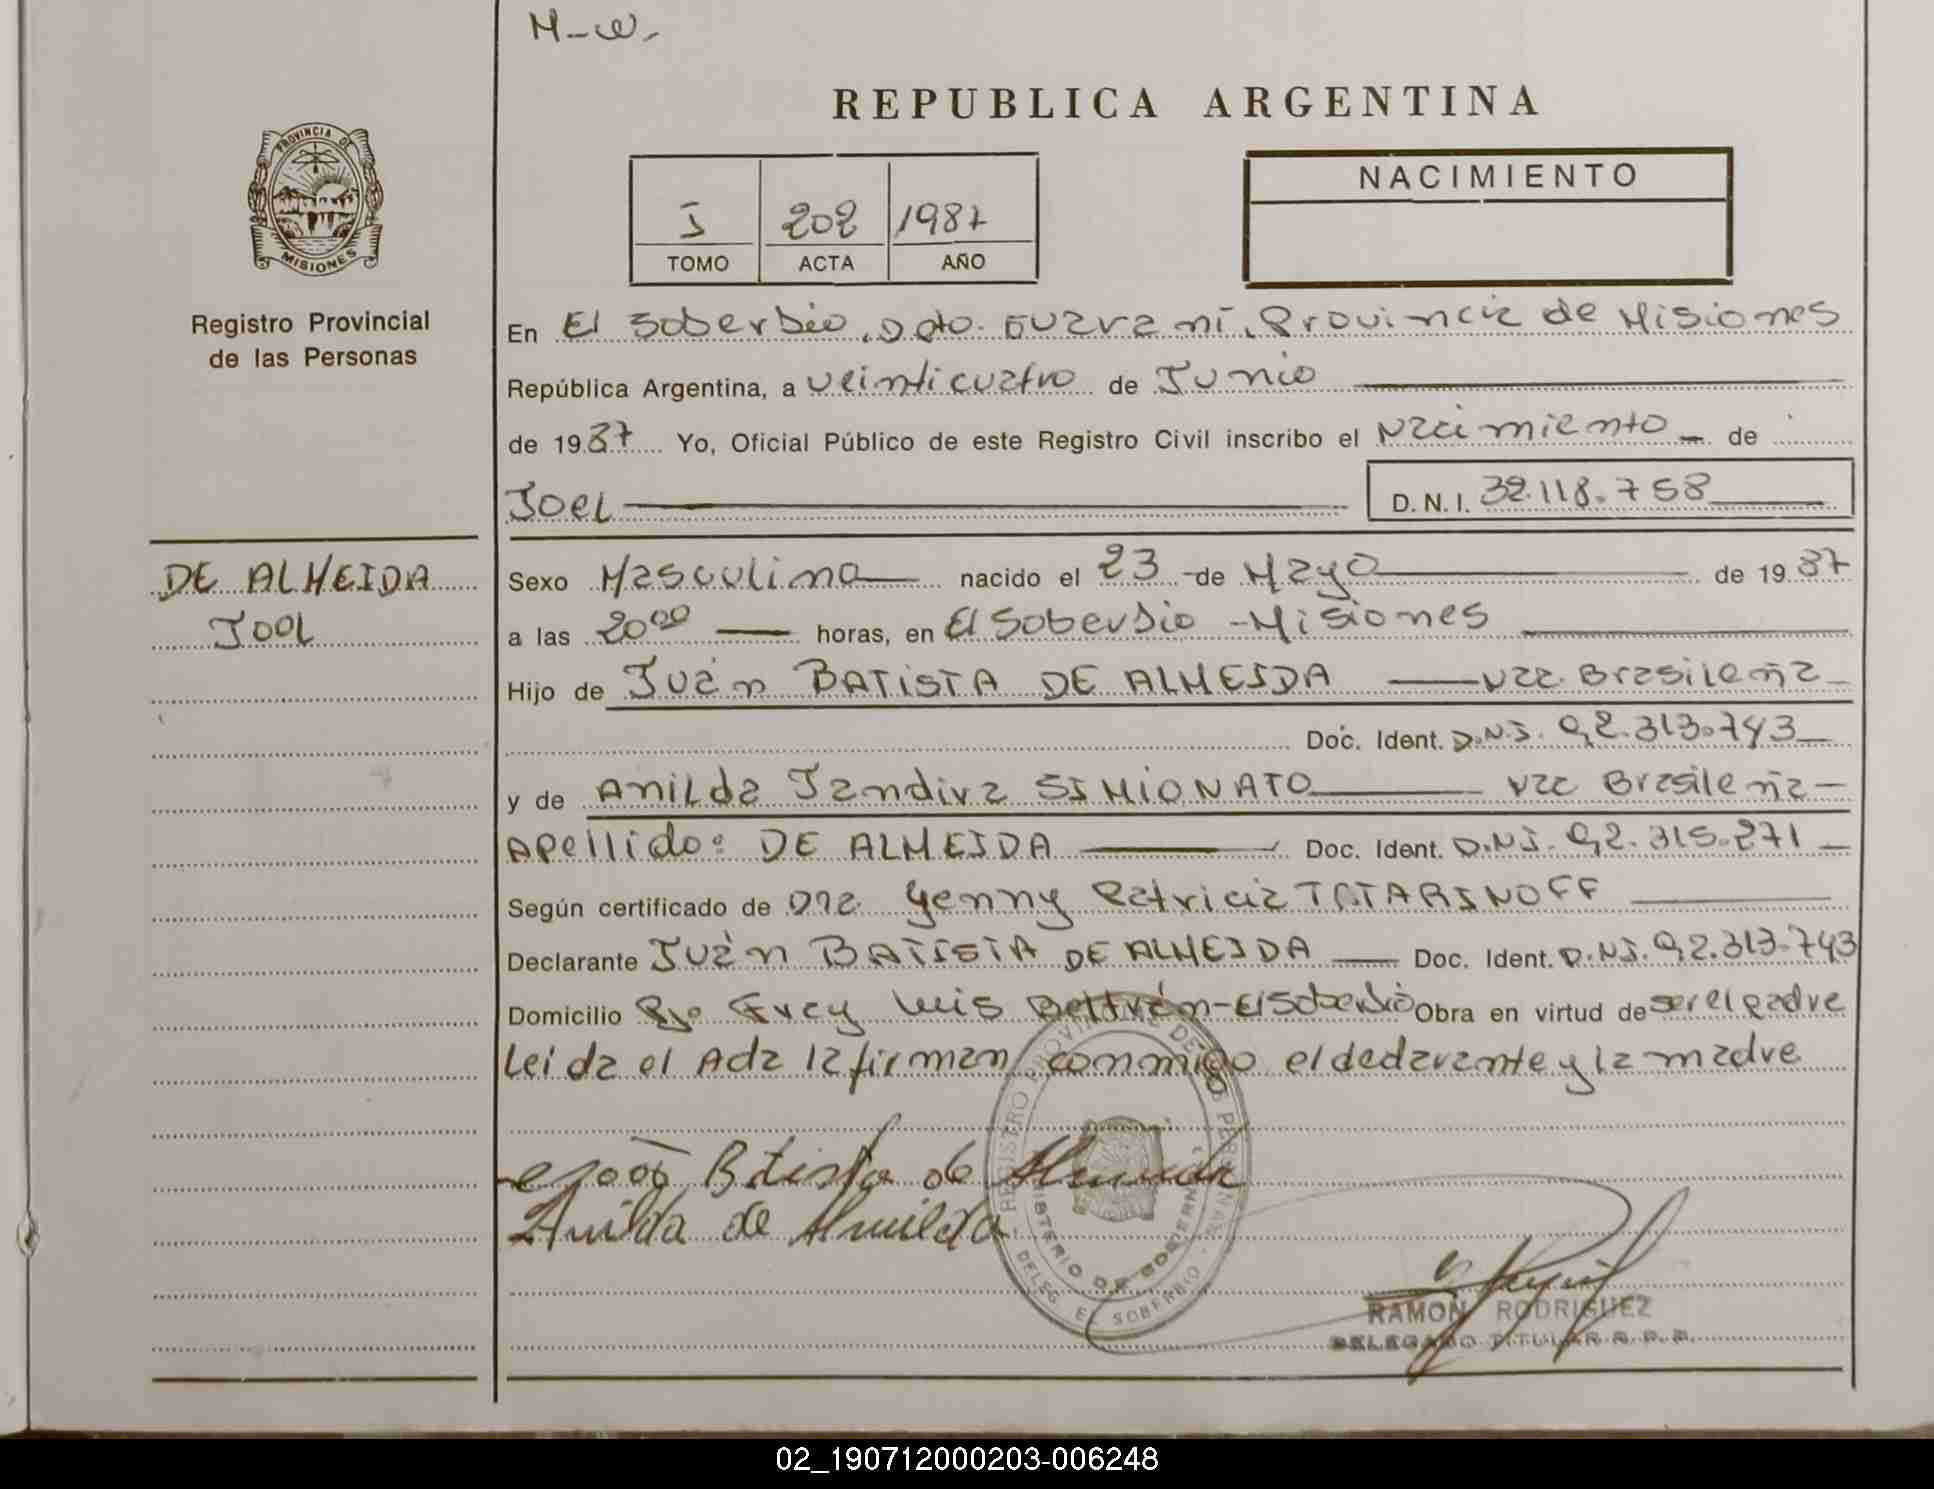 M-W.
REPUBLICA ARGENTINA
PROVINCIA DE
MISIONES
Registro Provincial
de las Personas
I 202 1987
TOMO ACTA AÑO
NACIMIENTO
En El Soberbio, Dpto. Guarani, Provincia de Misiones
República Argentina, a veinticuatro de Junio
de 1987 Yo, Oficial Público de este Registro Civil inscribo el Nacimiento de
Joel D.N.I. 32.118.758
DE ALMEIDA
Joel
Sexo Masculino nacido el 23 de Mayo de 1987
a las 20⁰⁰ horas, en El Soberbio - Misiones
Hijo de Juán BATISTA DE ALMEIDA Nac. Brasileña
Doc. Ident. D.N.I. 92.313.743
y de Anilda Jandira SIMIONATO Nac Brasileña
Apellido: DE ALMEIDA Doc. Ident. D.N.I. 92.315.271
Según certificado de Dra. Yenny Patricia TATARINOFF
Declarante Juán BATISTA DE ALMEIDA Doc. Ident. D.N.I. 92.313.743
Domicilio Frey Luis Beltrán - El Soberbio Obra en virtud de ser el padre
Leida el Acta la firman conmigo el declarante y la madre
Batista de Almeida
Anilda de Almeida
REGISTRO PROVINCIAL DE LAS PERSONAS
MINISTERIO DE GOBIERNO
DELEG. EL SOBERBIO
RAMON RODRIGUEZ
DELEGADO TITULAR R.P.P.
02_190712000203-006248